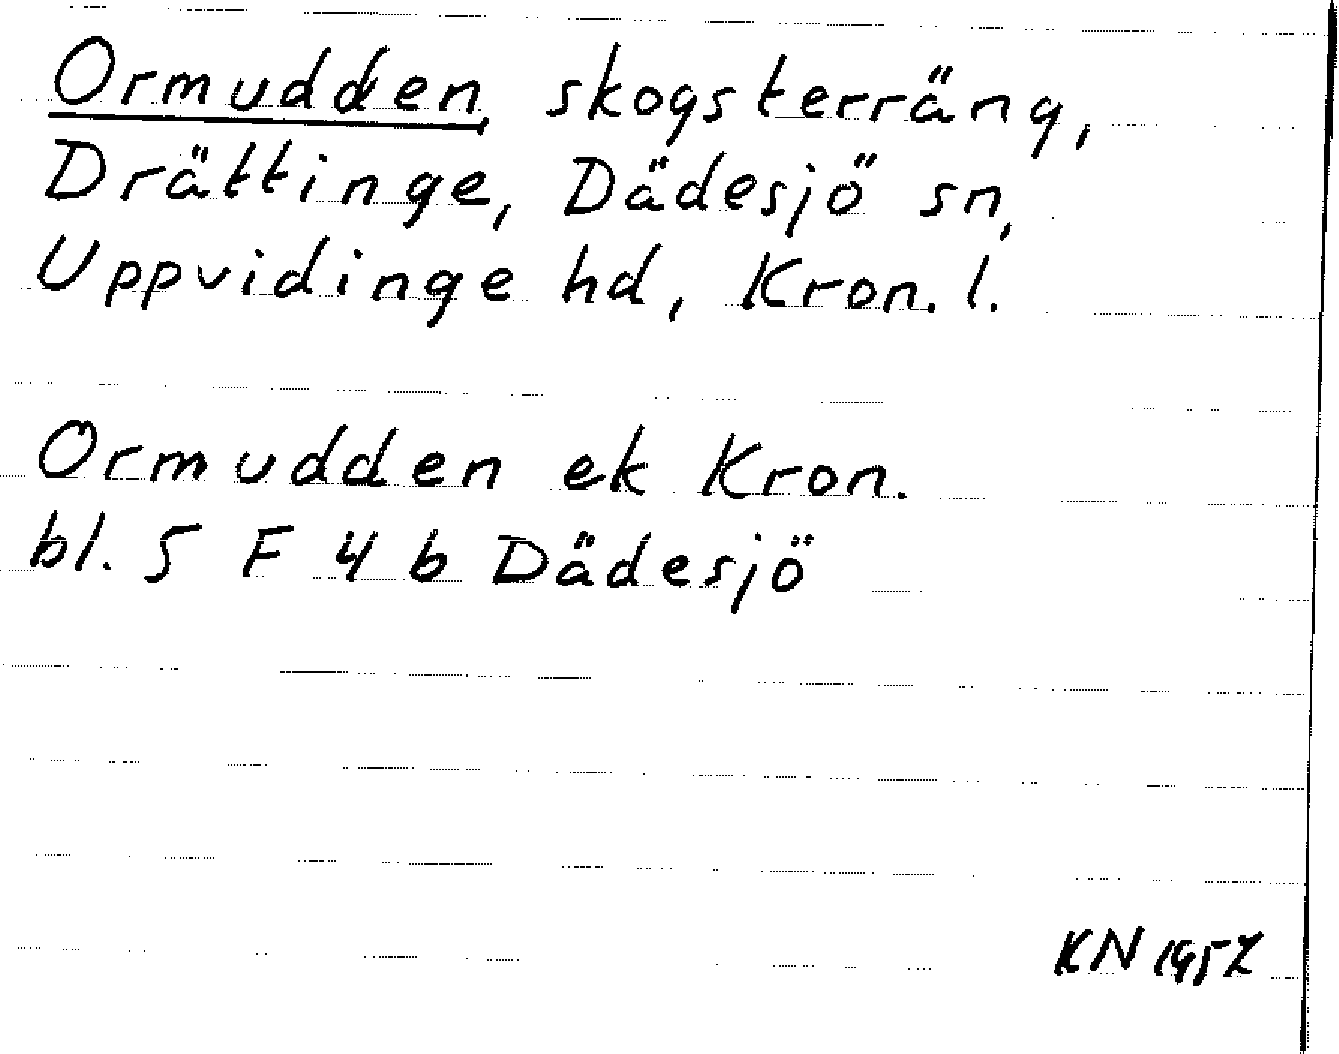 Ormudden, skogsterräng,
Drättinge, Dädesjö sn,
Uppvidinge hd, Kron. l.
Ormudden ek Kron.
bl. 5 F 4 b Dädesjö
KN 1957